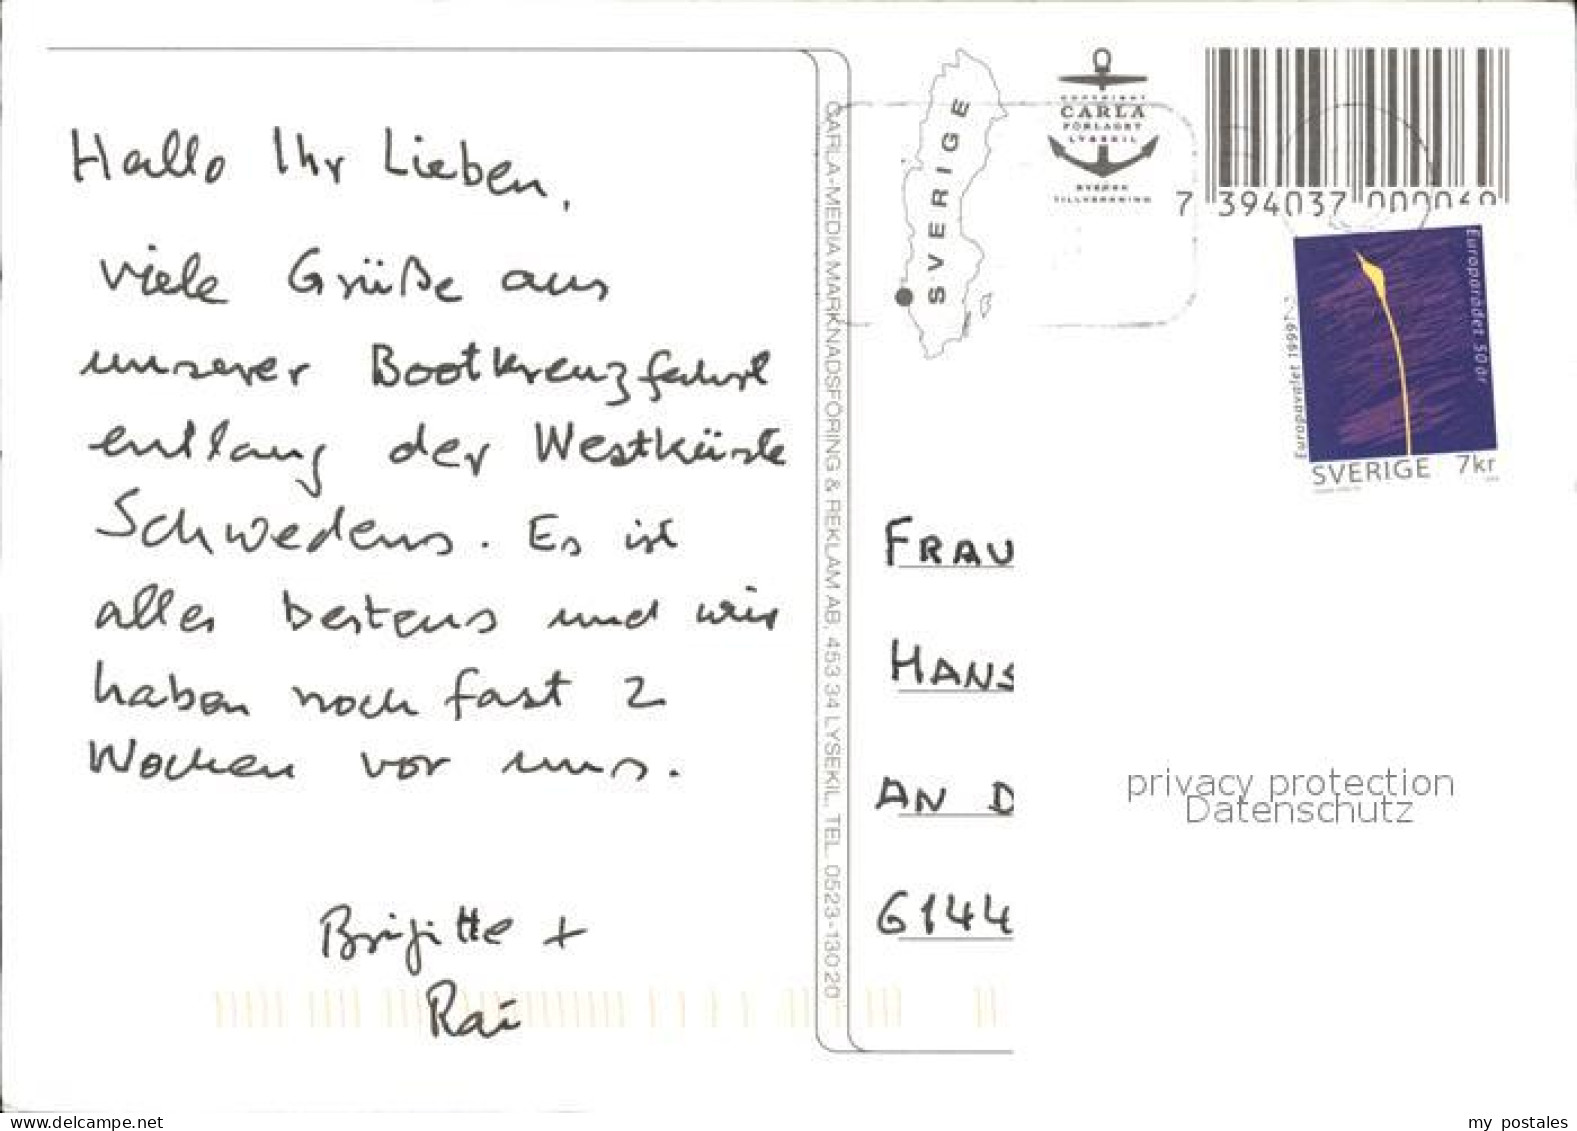 Hallo Ihr Lieben,
viele Grüße aus
unserer Bootkreuzfahrt
entlang der Westküste
Schwedens. Es ist
alles bestens und wir
haben noch fast 2
Wochen vor uns.
Brigitte +
Rai
CARLA-MEDIA MARKNADSFÖRING & REKLAM AB, 453 34 LYSEKIL, TEL. 0523-130 20
SVERIGE
COPYRIGHT
CARLA
FÖRLAGET
LYSEKIL
SVENSK
TILLVERKNING
7 394037 000040
Europavalet 1999
Europarådet 50 år
SVERIGE 7kr
FRAU
HANS
AN D
6144
privacy protection
Datenschutz
www.delcampe.net
my_postales